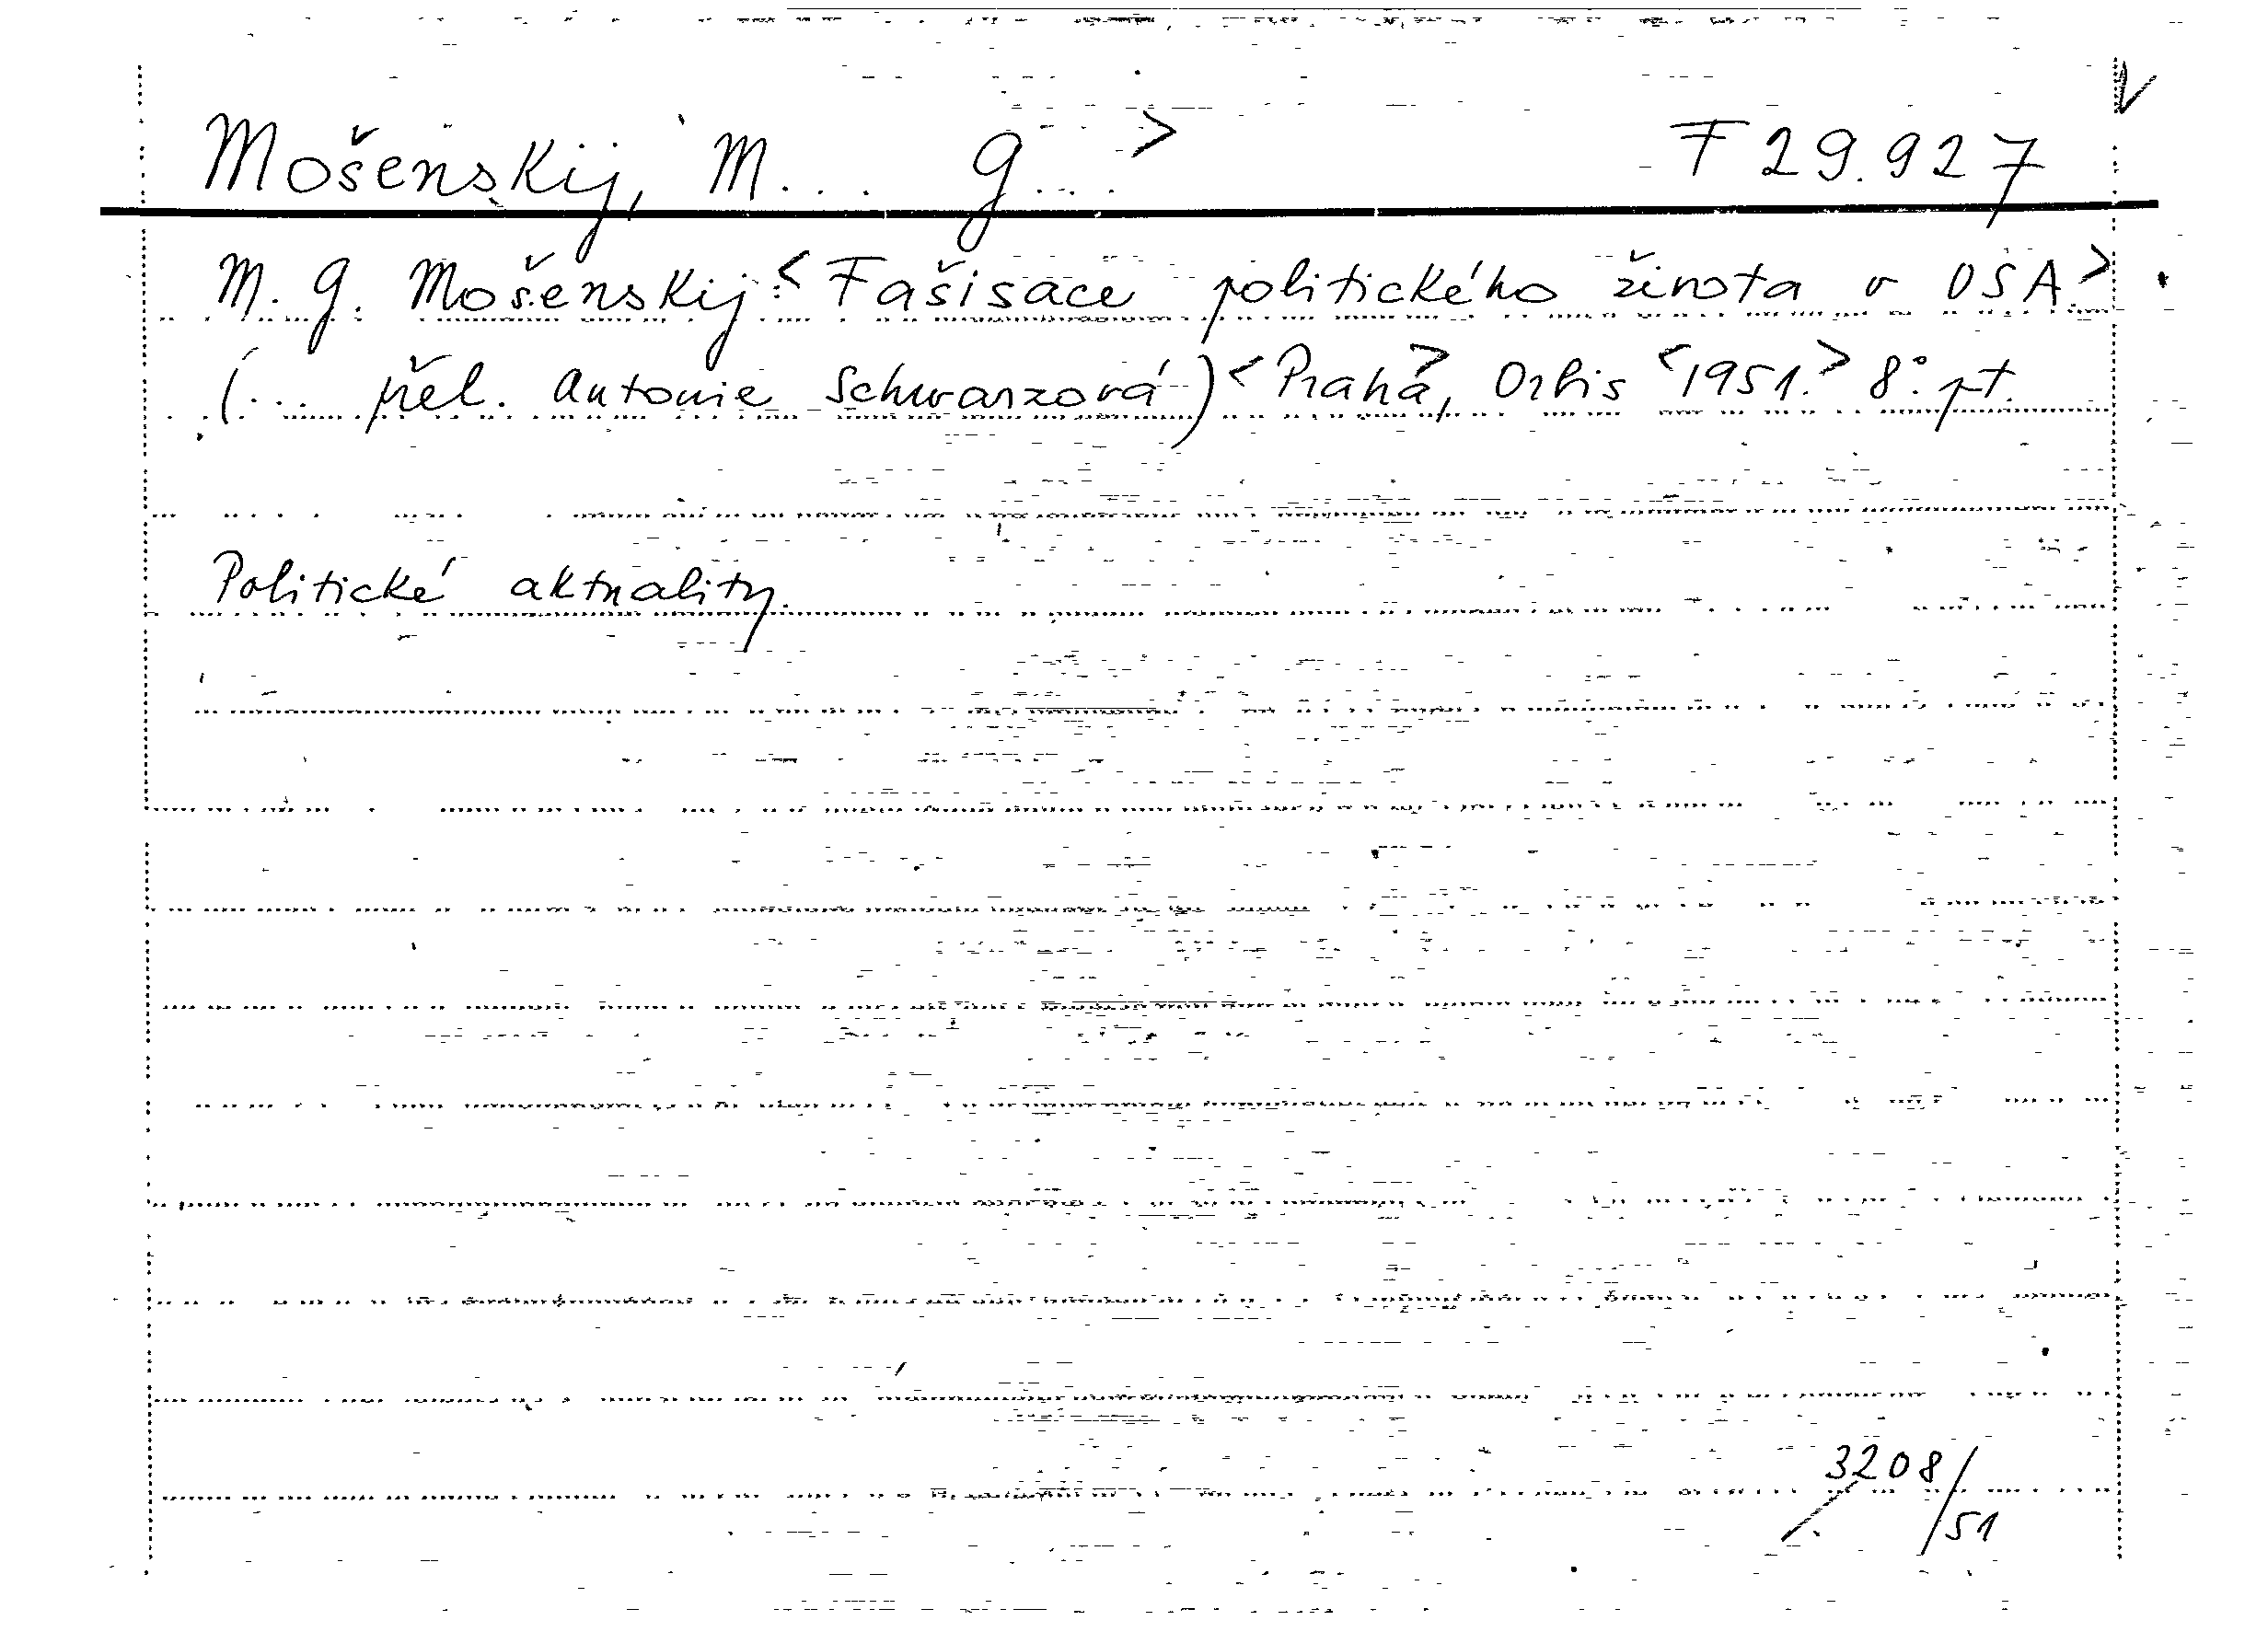 Mošenskij, M... G...> F 29.927
M. G. Mošenskij: <Fašisace politického života v USA.>
(... přel. Antonie Schwarzová) <Praha>, Orbis <1951.> 8° pt.
Politické aktuality.
3208/51